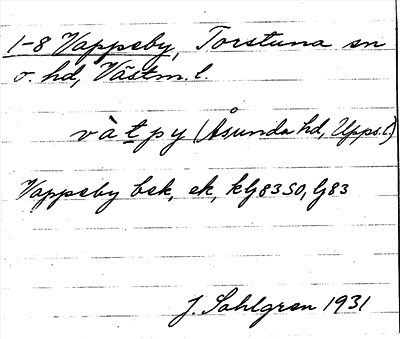 1-8 Vappeby, Torstuna sn
o. hd, Västm. l.
vàt̲py (Åsunda hd, Upps. l.)
Vappeby bsk, ek, kG83SO, G83
J. Sahlgren 1931